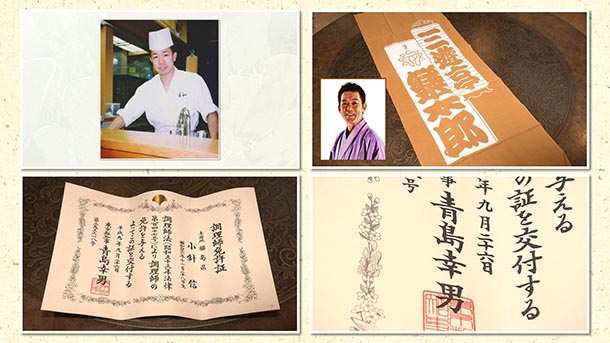 三遊亭
太郎
調理師免許証
福島県
小針 信
調理師法(昭和三十三年法律
第百四十七号)により調理師の
免許を与える
よってこの証を交付する
平成九年九月二十六日
東京都知事 青島幸男
与える
の証を交付する
年九月二十六日
事 青島幸男
号